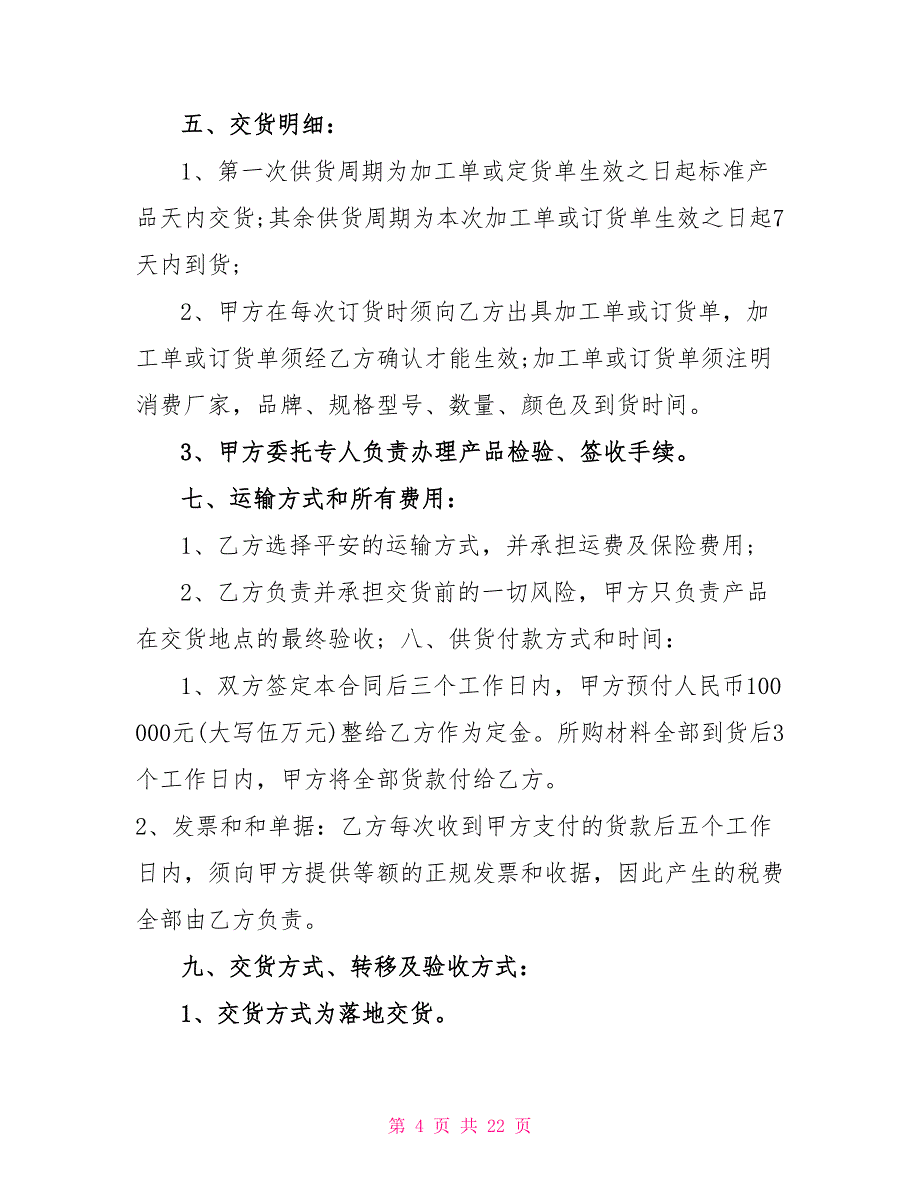 五、交货明细：
1、第一次供货周期为加工单或定货单生效之日起标准产
品天内交货;其余供货周期为本次加工单或订货单生效之日起7
天内到货;
2、甲方在每次订货时须向乙方出具加工单或订货单，加
工单或订货单须经乙方确认才能生效;加工单或订货单须注明
消费厂家，品牌、规格型号、数量、颜色及到货时间。
3、甲方委托专人负责办理产品检验、签收手续。
七、运输方式和所有费用：
1、乙方选择平安的运输方式，并承担运费及保险费用;
2、乙方负责并承担交货前的一切风险，甲方只负责产品
在交货地点的最终验收; 八、供货付款方式和时间：
1、双方签定本合同后三个工作日内，甲方预付人民币100
000元(大写伍万元)整给乙方作为定金。所购材料全部到货后3
个工作日内，甲方将全部货款付给乙方。
2、发票和和单据：乙方每次收到甲方支付的货款后五个工作
日内，须向甲方提供等额的正规发票和收据，因此产生的税费
全部由乙方负责。
九、交货方式、转移及验收方式：
1、交货方式为落地交货。
第 4 页 共 22 页